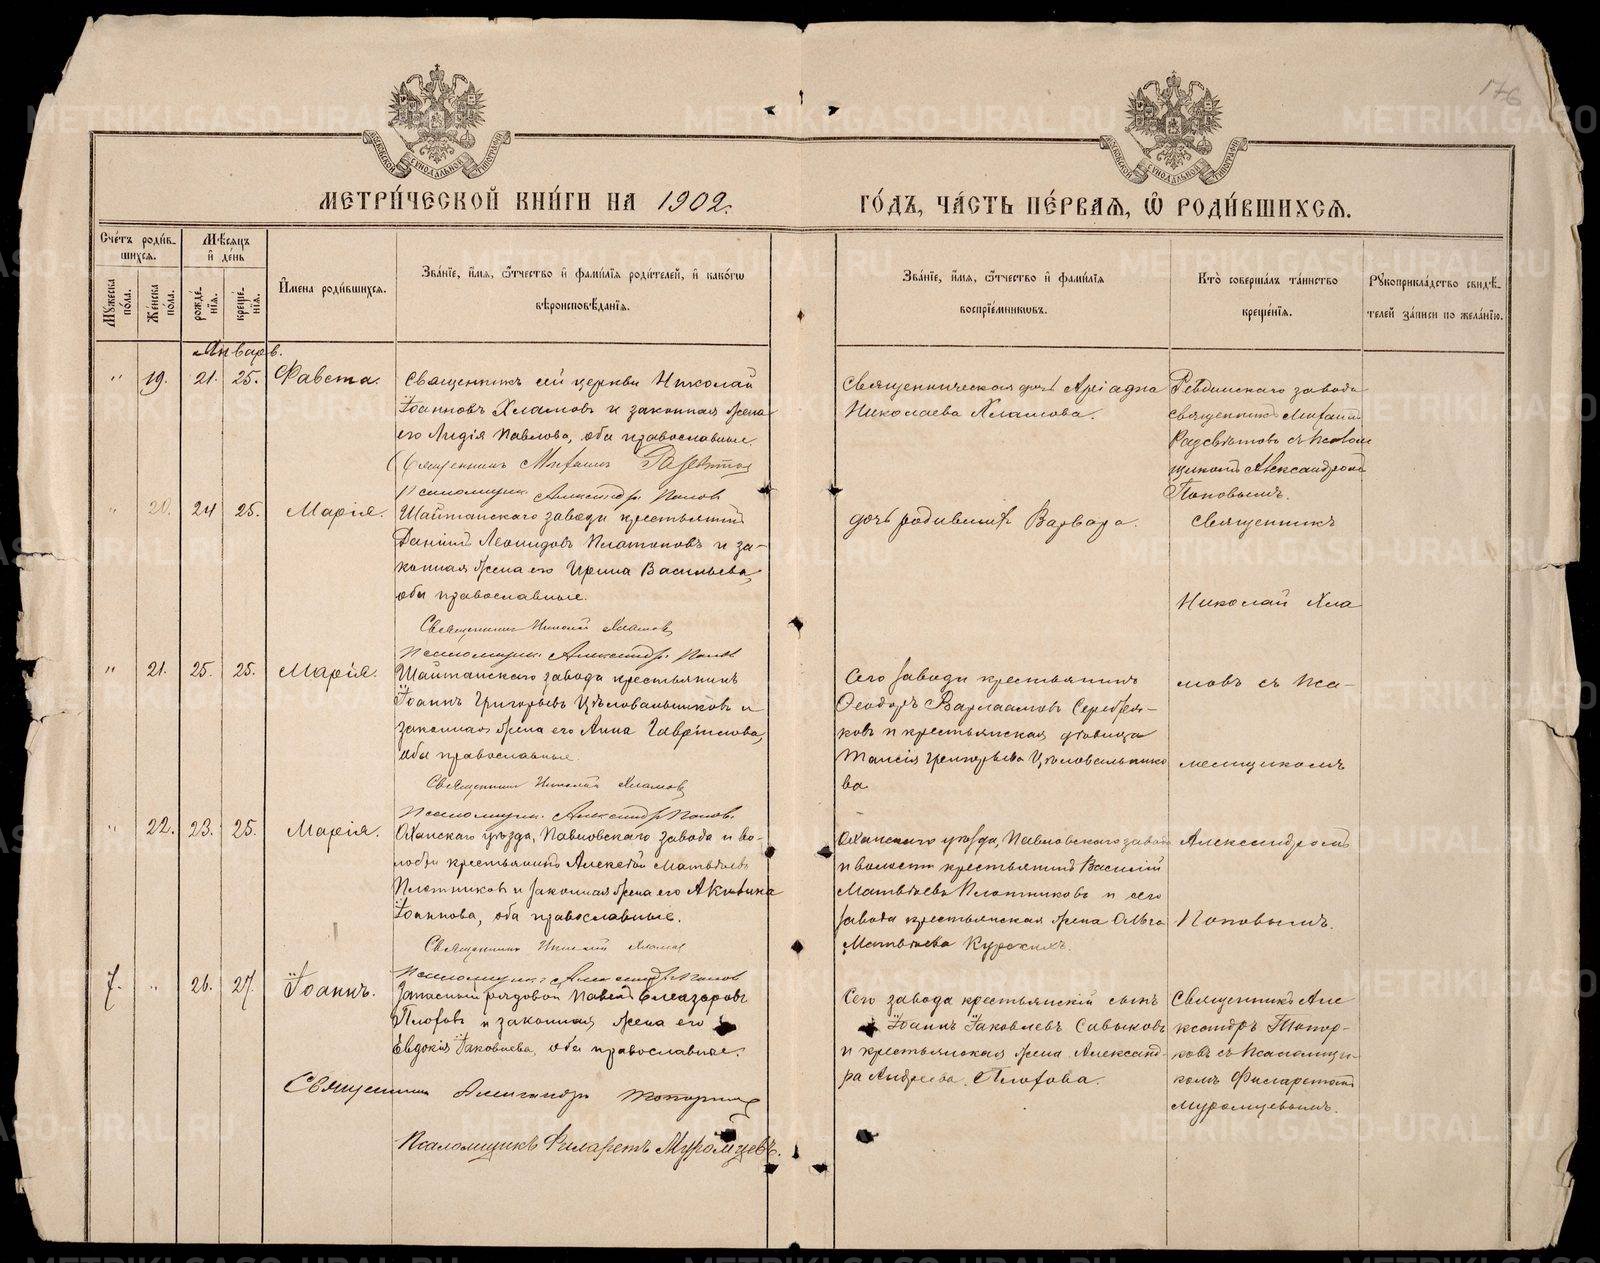 176
МЕТРИ́ЧЕСКОЙ КНИ́ГИ НА 1902.
ГО́ДЪ, ЧА́СТЬ ПЕ́РВАѦ, Ѡ РОДИ́ВШИХСѦ.
Счéтъ роди́в-
шихсѧ.
Мѣ́сѧцъ
и҆ де́нь
Мꙋжеска по́ла.
Же́нска по́ла.
рожде́-
нїѧ.
креще́-
нїѧ.
И҆мена роди́вшихсѧ.
Зва́нїе, и҆́мѧ, ѻ҆́тчество и҆ фами́лїѧ роди́телей, и҆ како́гѡ
вѣроисповѣ́данїѧ.
Зва́нїе, и҆́мѧ, ѻ҆́тчество и҆ фами́лїѧ
воспрїе́мникѡвъ.
Кто̀ соверша́лъ та́инство
креще́нїѧ.
Рꙋкоприкла́дство свидѣ́-
телей за́писи по жела́нїю.
Январь.
" 19. 21. 25. Фавста.
Священникъ сей церкви Николай
Іоанновъ Хламовъ и законная жена
его Лидія Павлова, оба православные.
Священникъ Мифаил Разсвѣтов
Псаломщик Александръ Попов
Священническая дочь Аріадна
Николаева Хламова.
Ревдинскаго завода
священникъ Мифаил
Разсвѣтовъ съ псалом
щикомъ Александромъ
Поповымъ.
" 20. 24 25. Марія.
Шайтанскаго завода крестьянинъ
Даніилъ Леонидовъ Платоновъ и за-
конная жена его Ирина Васильева,
оба православные.
Священникъ Николай Хламовъ
Псаломщик Александръ Попов
дочь родившихъ Варвара.
Священникъ
Николай Хла
" 21. 25. 25. Марія.
Шайтанскаго завода крестьянинъ
Іоаннъ Григорьевъ Цѣловальниковъ и
законная жена его Анна Гавріилова,
оба православные.
Священникъ Николай Хламовъ
Псаломщик Александръ Попов.
Сего завода крестьянинъ
Ѳеодоръ Варлаамовъ Серебря-
ковъ и крестьянская дѣвица
Таисія Григорьева Цѣловальнико
ва
мовъ съ Пса-
ломщикомъ
" 22. 23. 25. Марія.
Оханскаго уѣзда, Павловскаго завода и во-
лости крестьянинъ Алексѣй Матвѣевъ
Плотниковъ и законная жена его Акилина
Іоаннова, оба православные.
Священникъ Николай Хламов
Псаломщикъ Александръ Попов
Оханскаго уѣзда, Павловскаго завода
и волости крестьянинъ Василій
Матвѣевъ Плотниковъ и сего
завода крестьянская жена Ольга
Матвѣева Курскихъ.
Александромъ
Поповымъ.
7. " 26. 27. Іоаннъ.
Запасный рядовой Павелъ Елеазаровъ
Плотовъ и законная жена его
Евдокія Іаковлева, оба православные.
Священникъ Александръ Топорковъ
Псаломщикъ Филаретъ Муромцевъ.
Сего завода крестьянскій сынъ
Іоаннъ Іаковлевъ Савыковъ
и крестьянская жена Александ-
ра Андреева Плотова.
Священникъ Але
ксандръ Топор-
ковъ съ псаломщи-
комъ Филаретомъ
Муромцевымъ.
METRIKI.GASO-URAL.RU